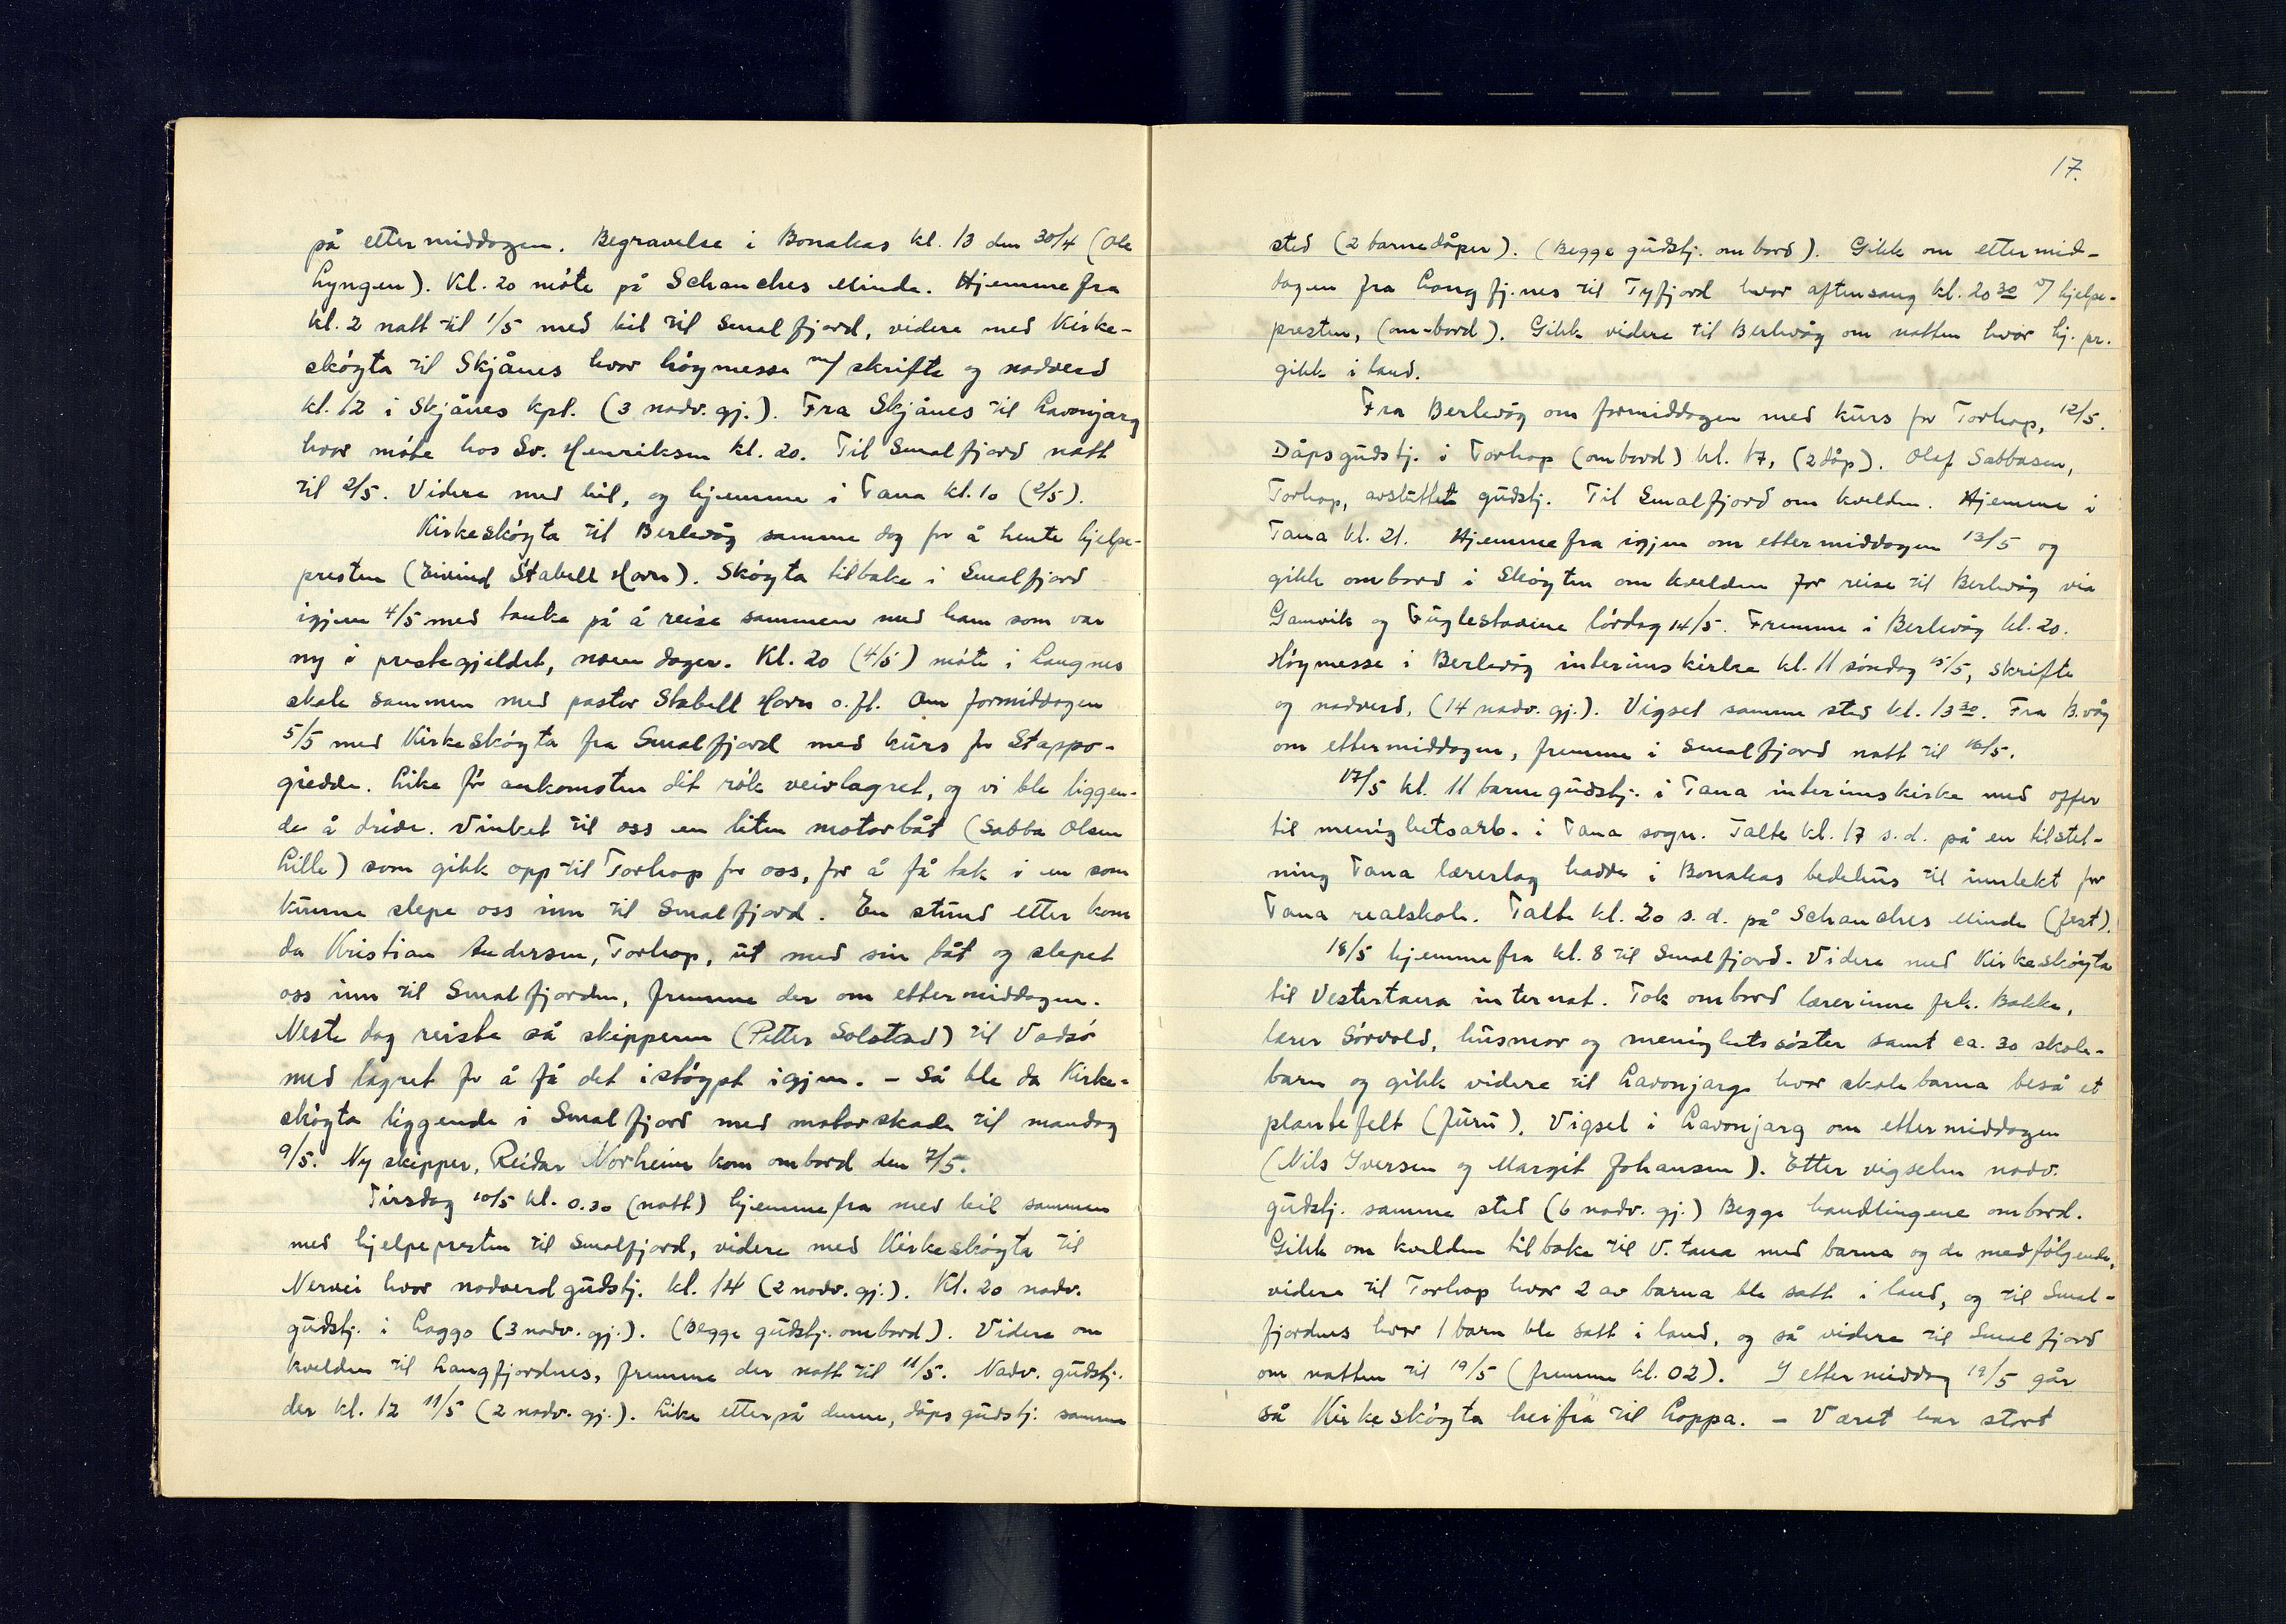 på ettermiddagen. Begravelse i Bonakas kl. 13 den 30/4 (Ole
Lyngen). Kl. 20 møte på Schanches Minde. Hjemmefra
kl. 2 natt til 1/5 med bil til Smalfjord, videre med Kirke-
skøyta til Skjånes hvor høymesse m/ skrifte og nadverd
kl. 12 i Skjånes kpl. (3 nadv. gj.). Fra Skjånes til Lavonjarg
hvor møte hos Sv. Henriksen kl. 20. Til Smalfjord natt
til 2/5. Videre med bil, og hjemme i Tana kl. 10 (2/5).
Kirkeskøyta til Berlevåg samme dag for å hente hjelpe-
presten (Eivind Stabell Horn). Skøyta tilbake i Smalfjord
igjen 4/5 med tanke på å reise sammen med ham som var
ny i prestegjeldet, noen dager. Kl. 20 (4/5) møte i Langnes
skole sammen med pastor Stabell Horn o. fl. Om formiddagen
5/5 med Kirkeskøyta fra Smalfjord med kurs for Stappo-
giedde. Like før ankomsten dit røk veivlagret, og vi ble liggen-
de å drive. Vinket til oss en liten motorbåt (Sabba Olsen
Lille) som gikk opp til Torhop for oss, for å få tak i en som
kunne slepe oss inn til Smalfjord. En stund etter kom
da Kristian Andersen, Torhop, ut med sin båt og slepet
oss inn til Smalfjorden, fremme der om ettermiddagen.
Neste dag reiste så skipperen (Petter Solstad) til Vadsø
med lagret for å få det istøypt igjen. - Så ble da Kirke-
skøyta liggende i Smalfjord med motorskade til mandag
9/5. Ny skipper, Reidar Norheim kom ombord den 7/5.
Tirsdag 10/5 kl. 0.30 (natt) hjemmefra med bil sammen
med hjelpepresten til Smalfjord, videre med Kirkeskøyta til
Nervei hvor nadverdgudstj. kl. 14 (2 nadv. gj.). Kl. 20 nadv.
gudstj. i Laggo (3 nadv. gj.). (Begge gudstj. ombord). Videre om
kvelden til Langfjordnes, fremme der natt til 11/5. Nadv. gudstj.
der kl. 12 11/5 (2 nadv. gj.). Like etterpå denne, dåpsgudstj. samme
17.
sted (2 barnedåper). (Begge gudstj. ombord). Gikk om ettermid-
dagen fra Langfj.nes til Tyfjord hvor aftensang kl. 20 30 v/ hjelpe-
presten, (om-bord). Gikk videre til Berlevåg om natten hvor hj. pr.
gikk i land.
Fra Berlevåg om formiddagen med kurs for Torhop, 12/5.
Dåpsgudstj. i Torhop (ombord) kl. 17, (2 dåp). Olaf Sabbasen,
Torhop, avsluttet gudstj. Til Smalfjord om kvelden. Hjemme i
Tana kl. 21. Hjemmefra igjen om ettermiddagen 13/5 og
gikk ombord i Skøyten om kvelden for reise til Berlevåg via
Gamvik og Fuglestadene lørdag 14/5. Fremme i Berlevåg kl. 20.
Høymesse i Berlevåg interimskirke kl. 11 søndag 15/5, skrifte
og nadverd, (14 nadv. gj.). Vigsel samme sted kl. 13 30. Fra B.våg
om ettermiddagen, fremme i Smalfjord natt til 16/5.
17/5 kl. 11 barnegudstj. i Tana interimskirke med offer
til menighetsarb. i Tana sogn. Talte kl. 17 s.d. på en tilstel-
ning Tana lærerlag hadde i Bonakas bedehus til inntekt for
Tana realskole. Talte kl. 20 s.d. på Schanches Minde (fest).
18/5 hjemmefra kl. 8 til Smalfjord. Videre med Kirkeskøyta
til Vestertana internat. Tok ombord lærerinne frk. Bakke,
lærer Sørvold, husmor og menighetssøster samt ca. 30 skole-
barn og gikk videre til Lavonjarg hvor skolebarna beså et
plantefelt (furu). Vigsel i Lavonjarg om ettermiddagen
(Nils Iversen og Margit Johansen). Etter vigselen nadv.
gudstj. samme sted (6 nadv. gj.) Begge handlingene ombord.
Gikk om kvelden tilbake til V. tana med barna og de medfølgende,
videre til Torhop hvor 2 av barna ble satt i land, og til Smal-
fjordnes hvor 1 barn ble satt i land, og så videre til Smalfjord
om natten til 19/5 (fremme kl. 02). I ettermiddag 19/5 går
så Kirkeskøyta herfra til Loppa. - Været har stort